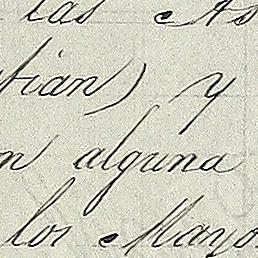 las As
tian) y
n alguna
los Mayo